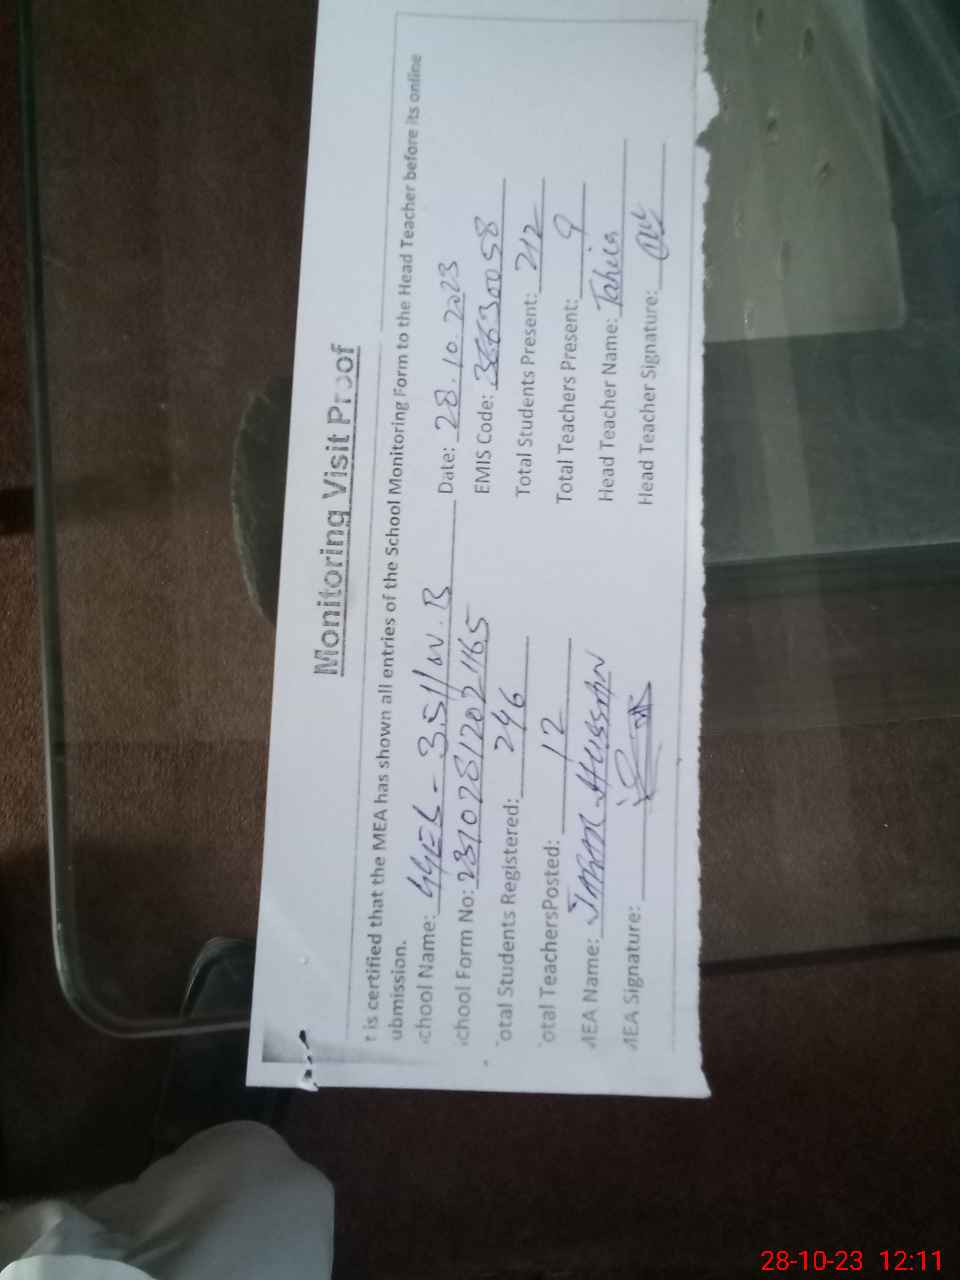 Monitoring Visit Proof
is certified that the MEA has shown all entries of the School Monitoring Form to the Head Teacher before its online
ubmission.
chool Name: GGES - 35/W.B Date: 28.10.2023
chool Form No: 23102812021165 EMIS Code: 36630058
otal Students Registered: 246 Total Students Present: 212
otal TeachersPosted: 12 Total Teachers Present: 9
MEA Name: Hussain Head Teacher Name: Tahira
MEA Signature: Head Teacher Signature:
28-10-23 12:11